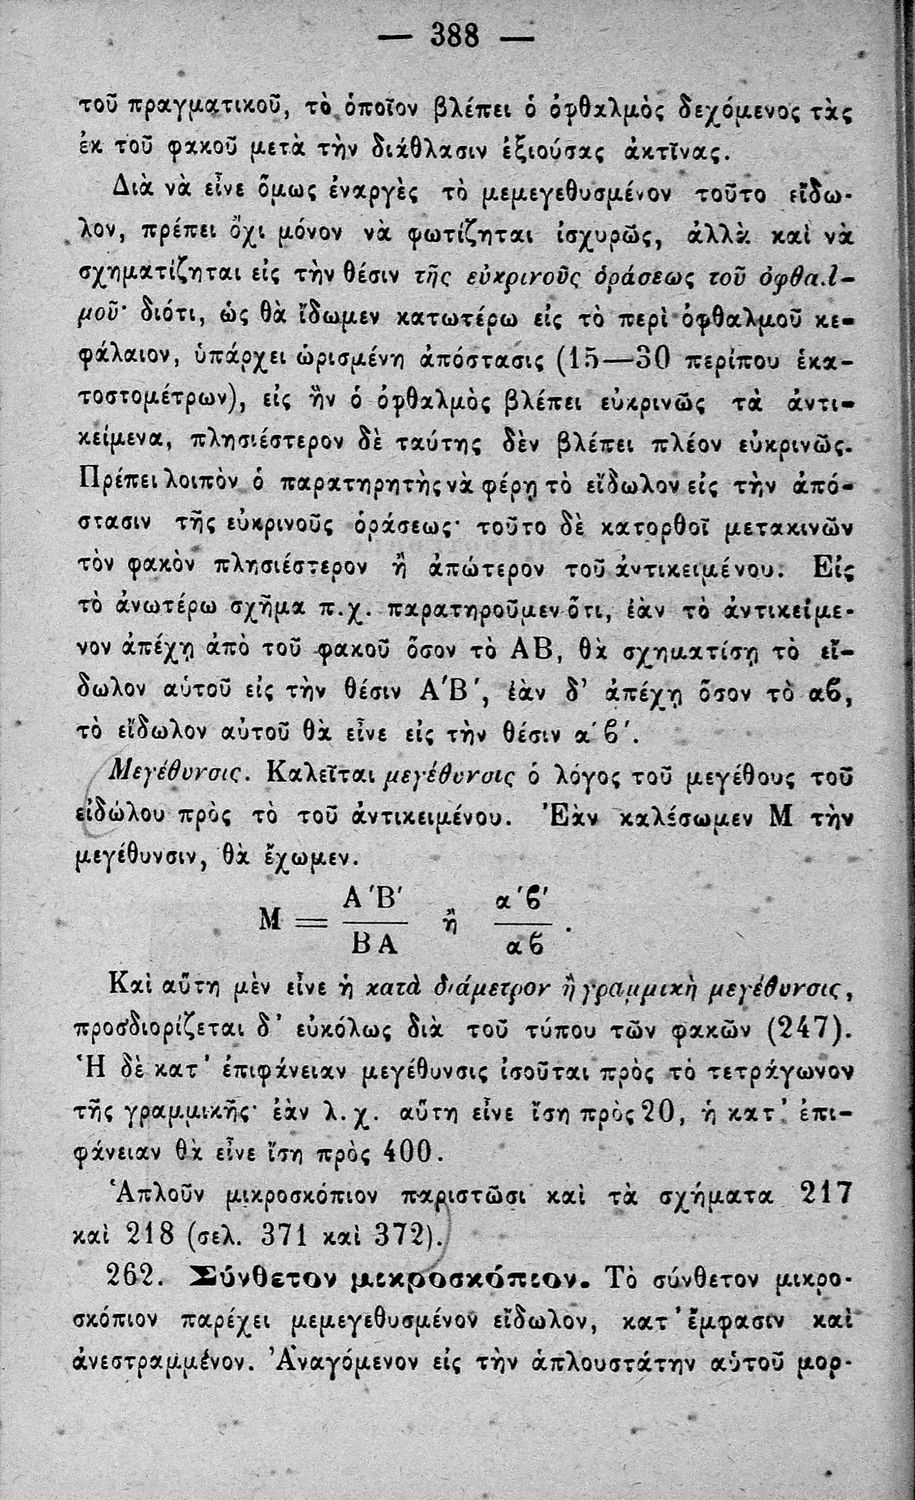 — 388 —
τοῦ πραγματικοῦ, τὸ ὁποῖον βλέπει ὁ ὀφθαλμὸς δεχόμενος τὰς
ἐκ τοῦ φακοῦ μετὰ τὴν διάθλασιν ἐξιούσας ἀκτῖνας.
Διὰ νὰ εἶνε ὅμως ἐναργὲς τὸ μεμεγεθυσμένον τοῦτο εἴδω-
λον, πρέπει ὄχι μόνον νὰ φωτίζηται ἰσχυρῶς, ἀλλὰ καὶ νὰ
σχηματίζηται εἰς τὴν θέσιν τῆς εὐκρινοῦς ὁράσεως τοῦ ὀφθαλ-
μοῦ· διότι, ὡς θὰ ἴδωμεν κατωτέρω εἰς τὸ περὶ ὀφθαλμοῦ κε-
φάλαιον, ὑπάρχει ὡρισμένη ἀπόστασις (15—30 περίπου ἑκα-
τοστομέτρων), εἰς ἣν ὁ ὀφθαλμὸς βλέπει εὐκρινῶς τὰ ἀντι-
κείμενα, πλησιέστερον δὲ ταύτης δὲν βλέπει πλέον εὐκρινῶς.
Πρέπει λοιπὸν ὁ παρατηρητὴς νὰ φέρῃ τὸ εἴδωλον εἰς τὴν ἀπό-
στασιν τῆς εὐκρινοῦς ὁράσεως· τοῦτο δὲ κατορθοῖ μετακινῶν
τὸν φακὸν πλησιέστερον ἢ ἀπώτερον τοῦ ἀντικειμένου. Εἰς
τὸ ἀνωτέρω σχῆμα π.χ. παρατηροῦμεν ὅτι, ἐὰν τὸ ἀντικείμε-
νον ἀπέχῃ ἀπὸ τοῦ φακοῦ ὅσον τὸ ΑΒ, θὰ σχηματίσῃ τὸ εἴ-
δωλον αὑτοῦ εἰς τὴν θέσιν Α΄Β΄, ἐὰν δ' ἀπέχῃ ὅσον τὸ αϐ,
τὸ εἴδωλον αὐτοῦ θὰ εἶνε εἰς τὴν θέσιν α΄ϐ΄.
Μεγέθυνσις. Καλεῖται μεγέθυνσις ὁ λόγος τοῦ μεγέθους τοῦ
εἰδώλου πρὸς τὸ τοῦ ἀντικειμένου. Ἐὰν καλέσωμεν Μ τὴν
μεγέθυνσιν, θὰ ἔχωμεν.
Μ = Α΄Β΄/ΒΑ ἢ α΄ϐ΄/αϐ.
Καὶ αὕτη μὲν εἶνε ἡ κατὰ διάμετρον ἢ γραμμικὴ μεγέθυνσις,
προσδιορίζεται δ' εὐκόλως διὰ τοῦ τύπου τῶν φακῶν (247).
Ἡ δὲ κατ' ἐπιφάνειαν μεγέθυνσις ἰσοῦται πρὸς τὸ τετράγωνον
τῆς γραμμικῆς· ἐὰν λ.χ. αὕτη εἶνε ἴση πρὸς 20, ἡ κατ' ἐπι-
φάνειαν θὰ εἶνε ἴση πρὸς 400.
Ἁπλοῦν μικροσκόπιον παριστῶσι καὶ τὰ σχήματα 217
καὶ 218 (σελ. 371 καὶ 372).
262. Σύνθετον μικροσκόπιον. Τὸ σύνθετον μικρο-
σκόπιον παρέχει μεμεγεθυσμένον εἴδωλον, κατ' ἔμφασιν καὶ
ἀνεστραμμένον. Ἀναγόμενον εἰς τὴν ἁπλουστάτην αὑτοῦ μορ-